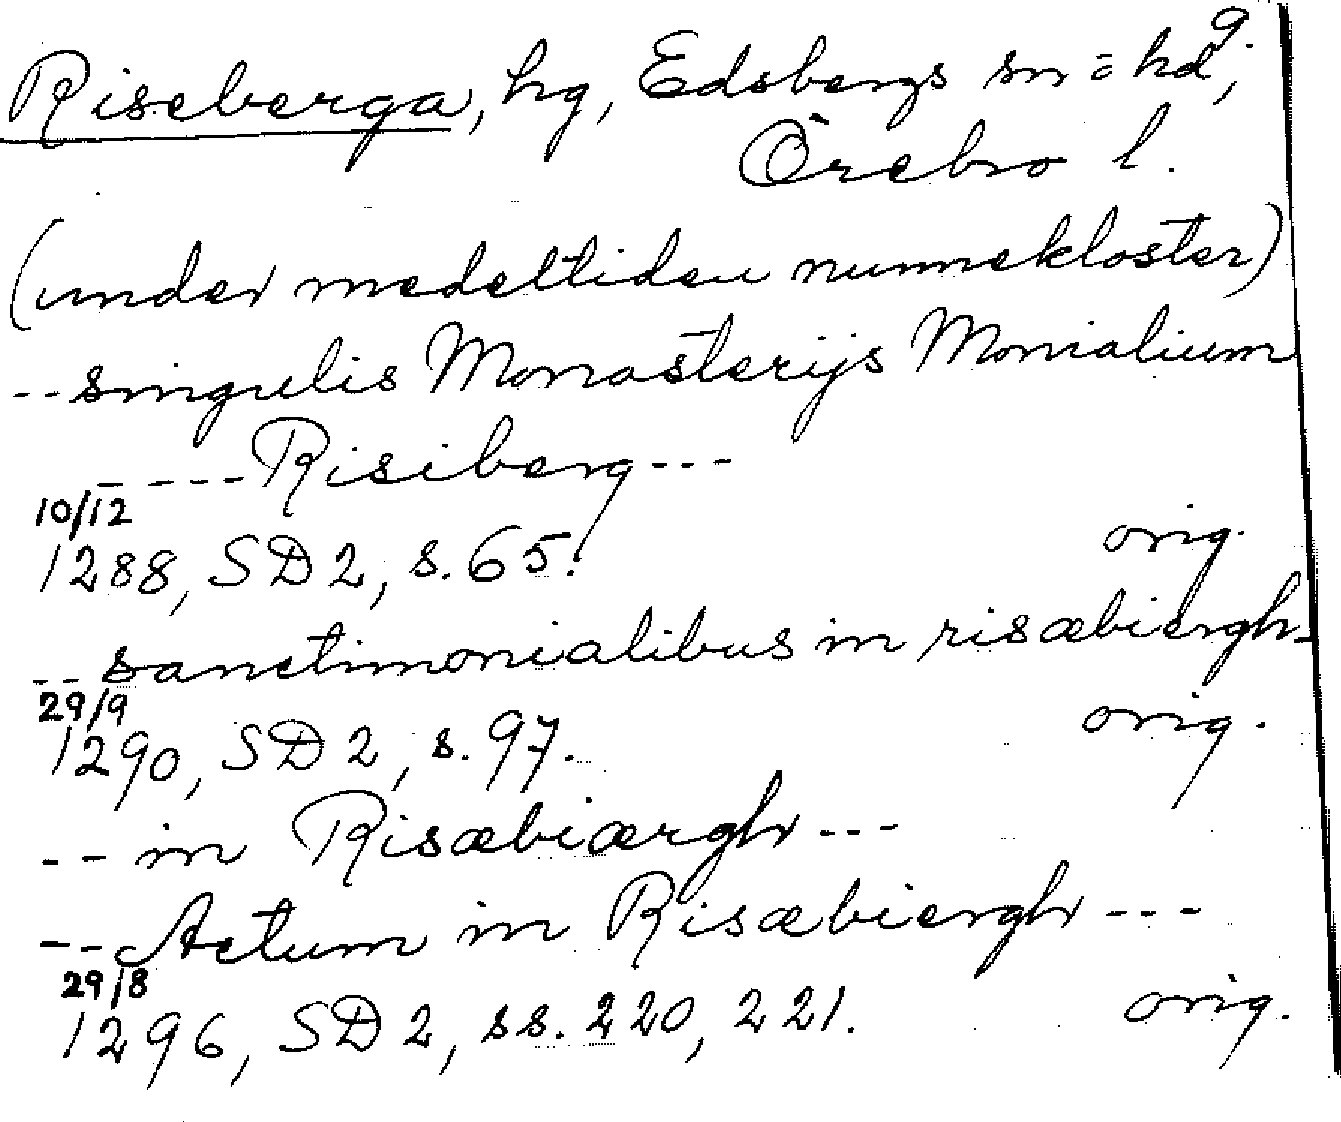 Riseberga, hg, Edsbergs sn o hd, 9.
Örebro l.
(under medeltiden nunnekloster)
-- singulis Monasterijs Monialium
----- Risiberg ---
10/12
1288, SD 2, s. 65. orig.
-- sanctimonialibus in risæbiergh-
29/9
1290, SD 2, s. 97. orig.
-- in Risæbiærgh ---
-- Actum in Risæbiergh ---
29/8
1296, SD 2, ss. 220, 221. orig.